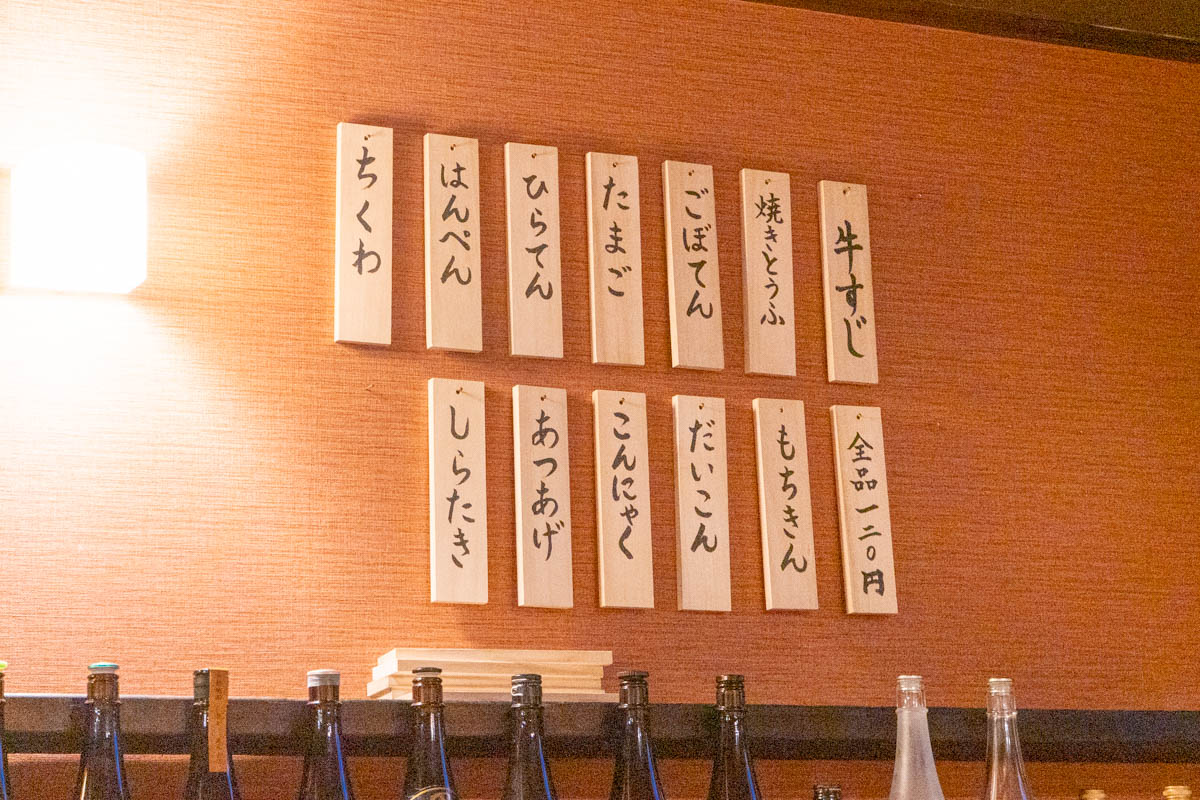 牛すじ
焼きとうふ
ごぼてん
たまご
ひらてん
はんぺん
ちくわ
全品一二〇円
もちきん
だいこん
こんにゃく
あつあげ
しらたき